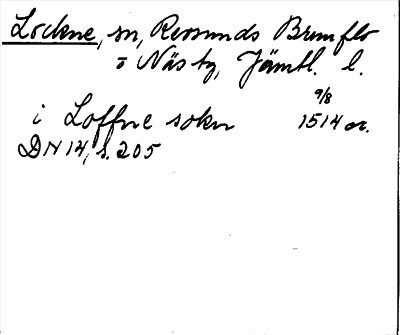 Lockne, sn, Revsunds Brunflo
o Näs tg, Jämtl. l.
9/8
i Loffne sokn 1514 or.
DN 14, s. 205